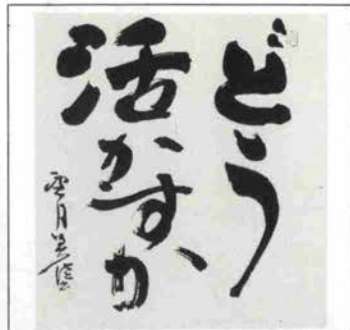 どう
活かすか